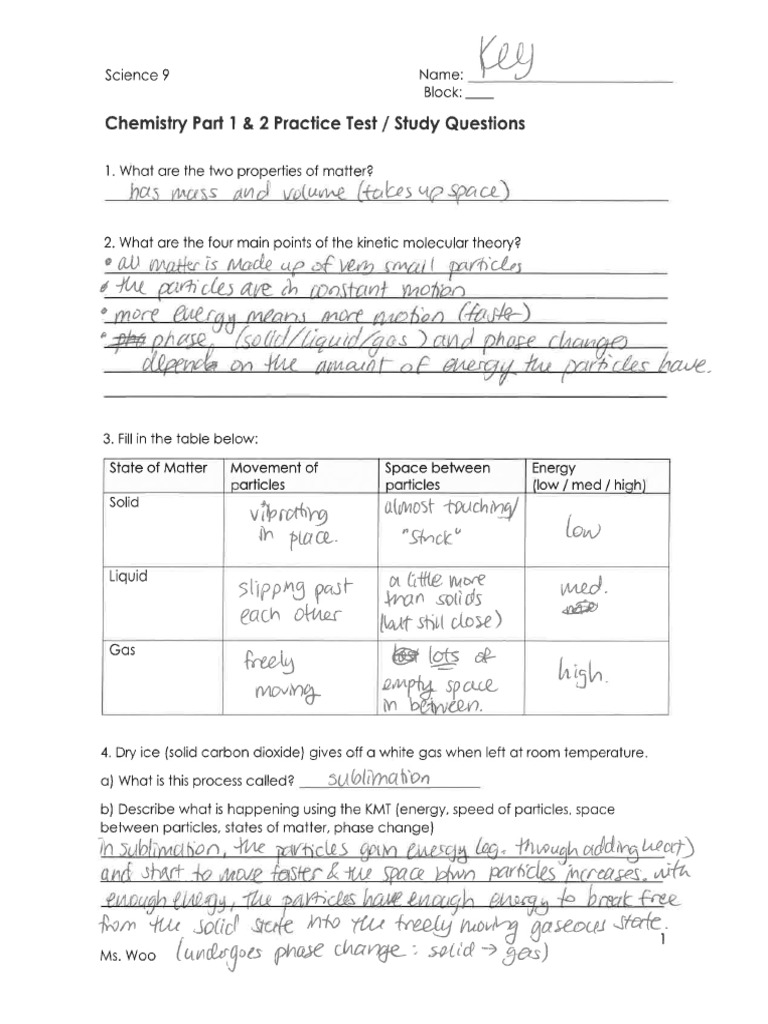 Science 9
Name: Key
Block: ____
Chemistry Part 1 & 2 Practice Test / Study Questions
1. What are the two properties of matter?
has mass and volume (takes up space)
2. What are the four main points of the kinetic molecular theory?
• all matter is made up of very small particles
• the particles are in constant motion
• more energy means more motion (faster)
• phase (solid/liquid/gas) and phase changes
depends on the amount of energy the particles have.
3. Fill in the table below:
State of Matter | Movement of particles | Space between particles | Energy (low / med / high)
Solid | vibrating in place. | almost touching/ "stuck" | low
Liquid | slipping past each other | a little more than solids (but still close) | med.
Gas | freely moving | lots of empty space in between. | high.
4. Dry ice (solid carbon dioxide) gives off a white gas when left at room temperature.
a) What is this process called? sublimation
b) Describe what is happening using the KMT (energy, speed of particles, space
between particles, states of matter, phase change)
in sublimation, the particles gain energy (eg. through adding heat)
and start to move faster & the space btwn particles increases. with
enough energy, the particles have enough energy to break free
from the solid state into the freely moving gaseous state.
1
Ms. Woo (undergoes phase change: solid → gas)